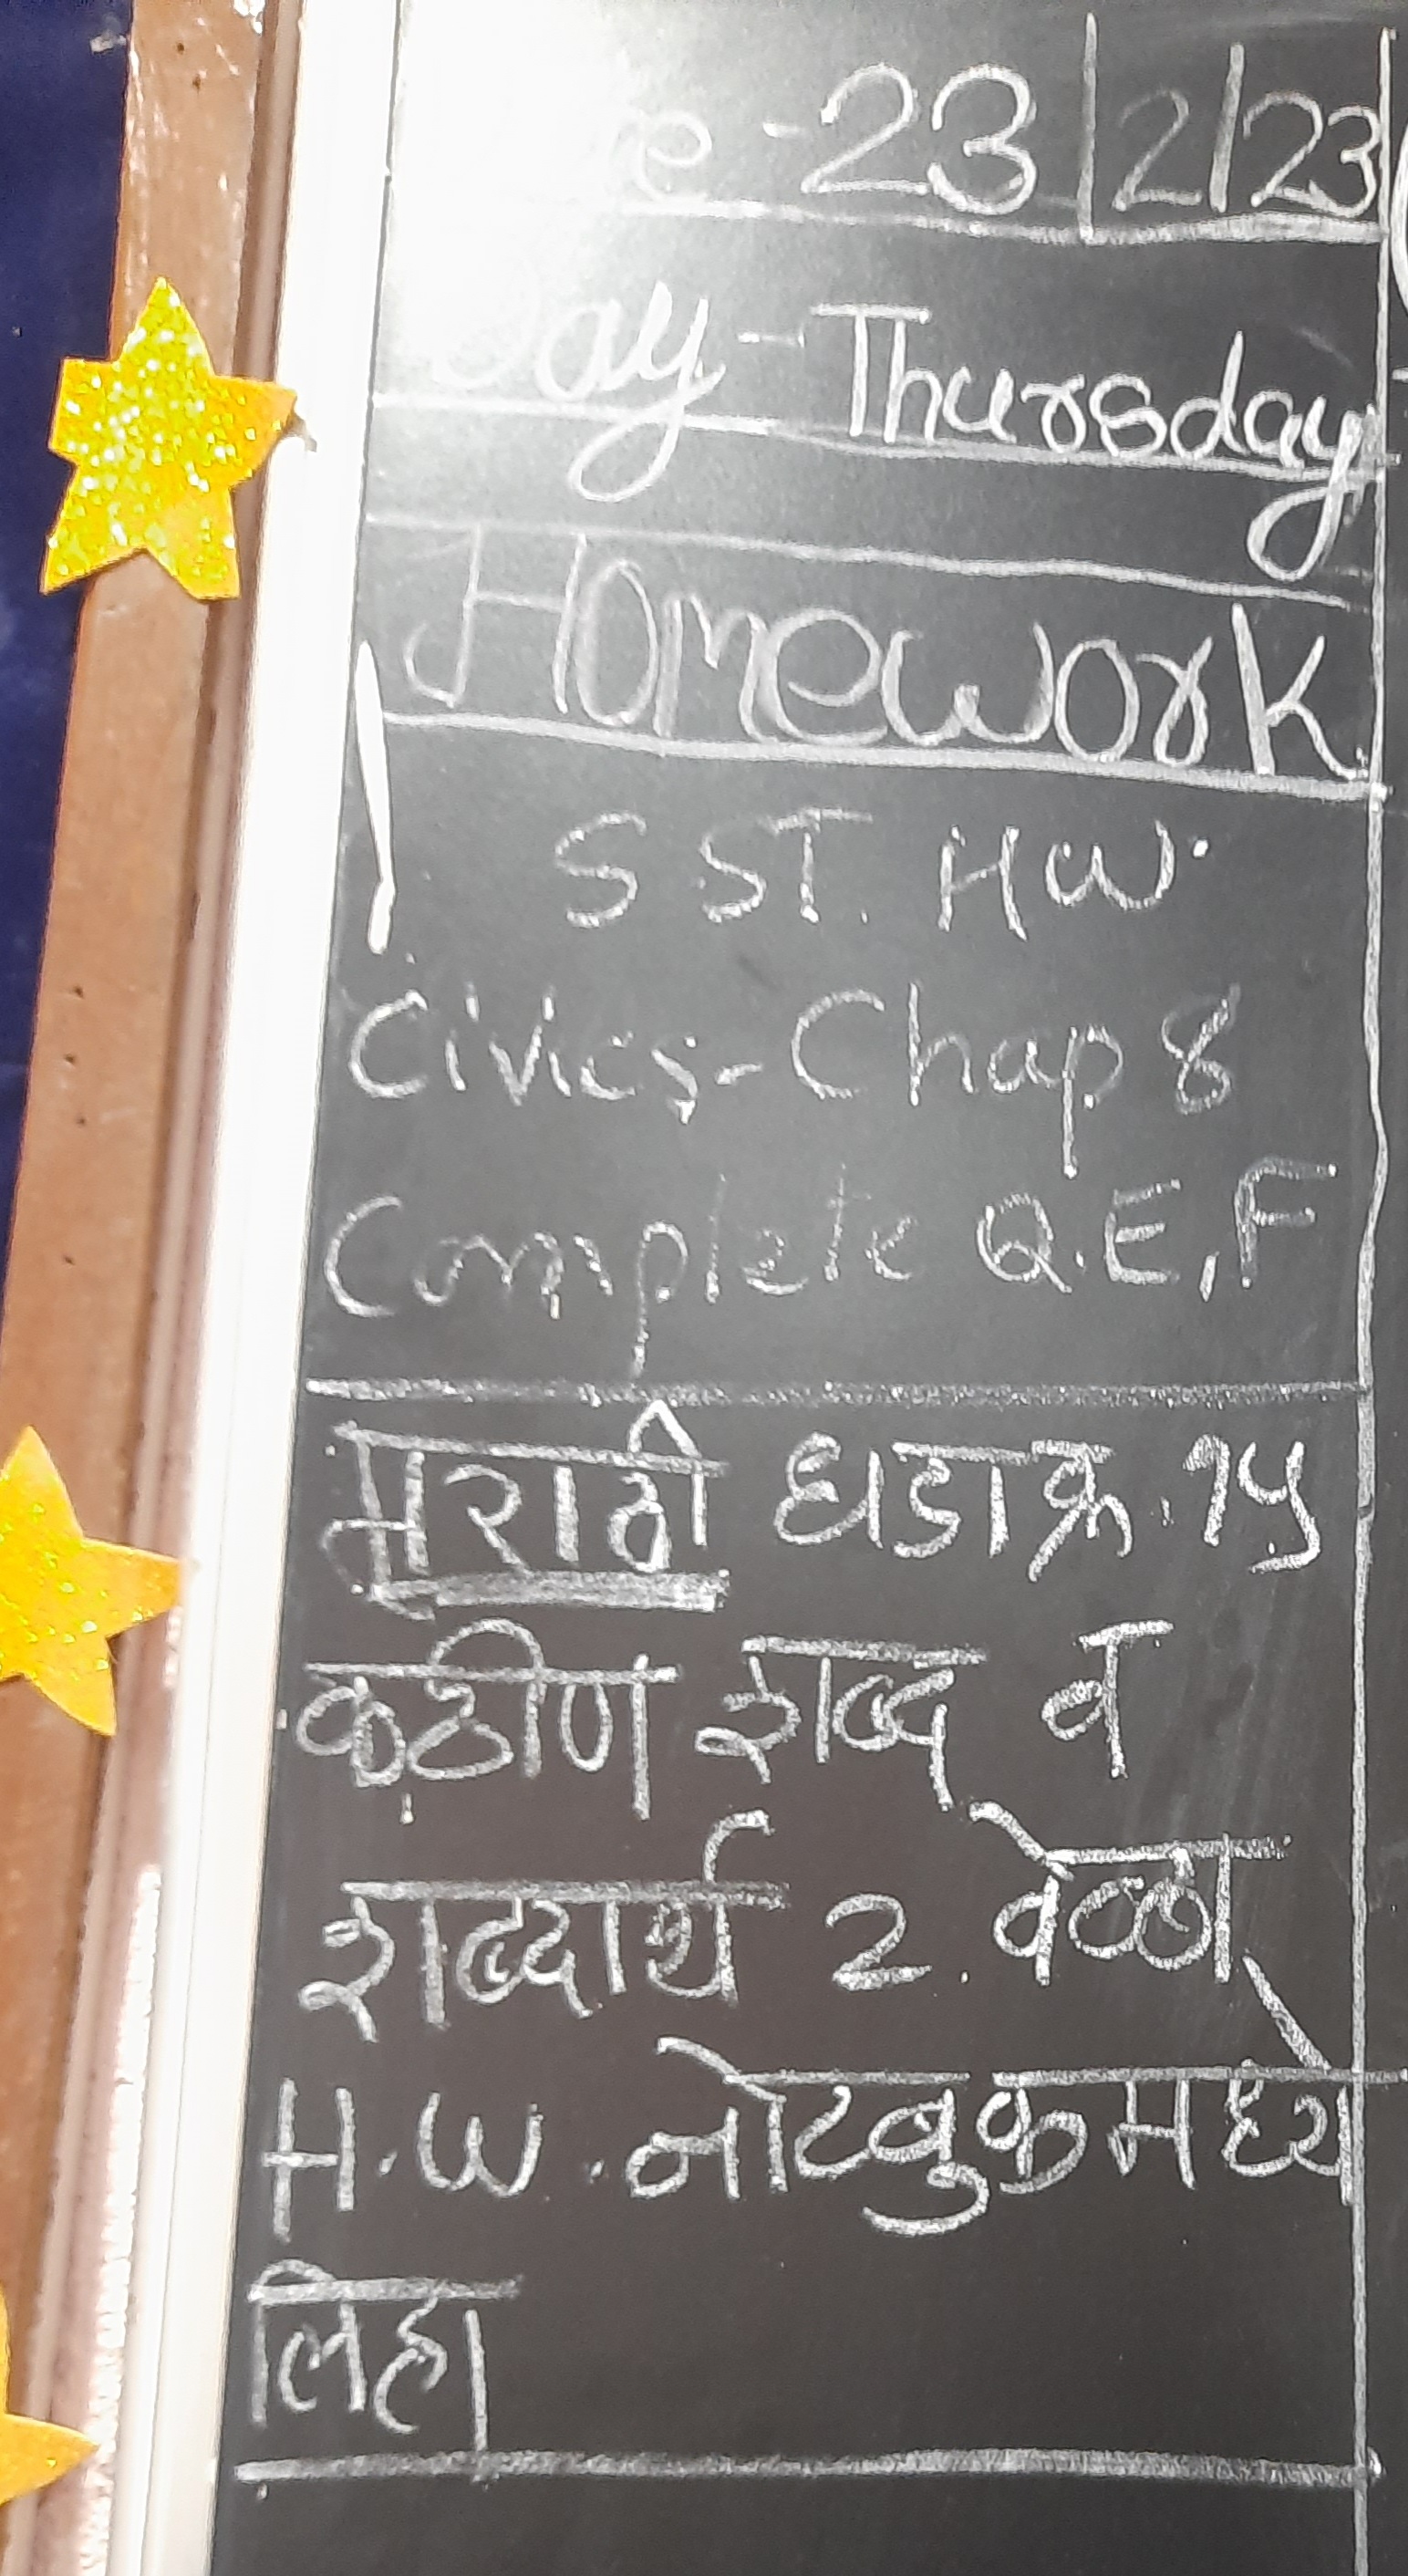 Date - 23/2/23
Day - Thursday
Homework
SST. HW.
Civics - Chap 8
Complete Q.E, F
मराठी धडा क्र. १५
कठीण शब्द व
शब्दार्थ 2. वेळा
H.W. नोटबुकमध्ये
लिहा